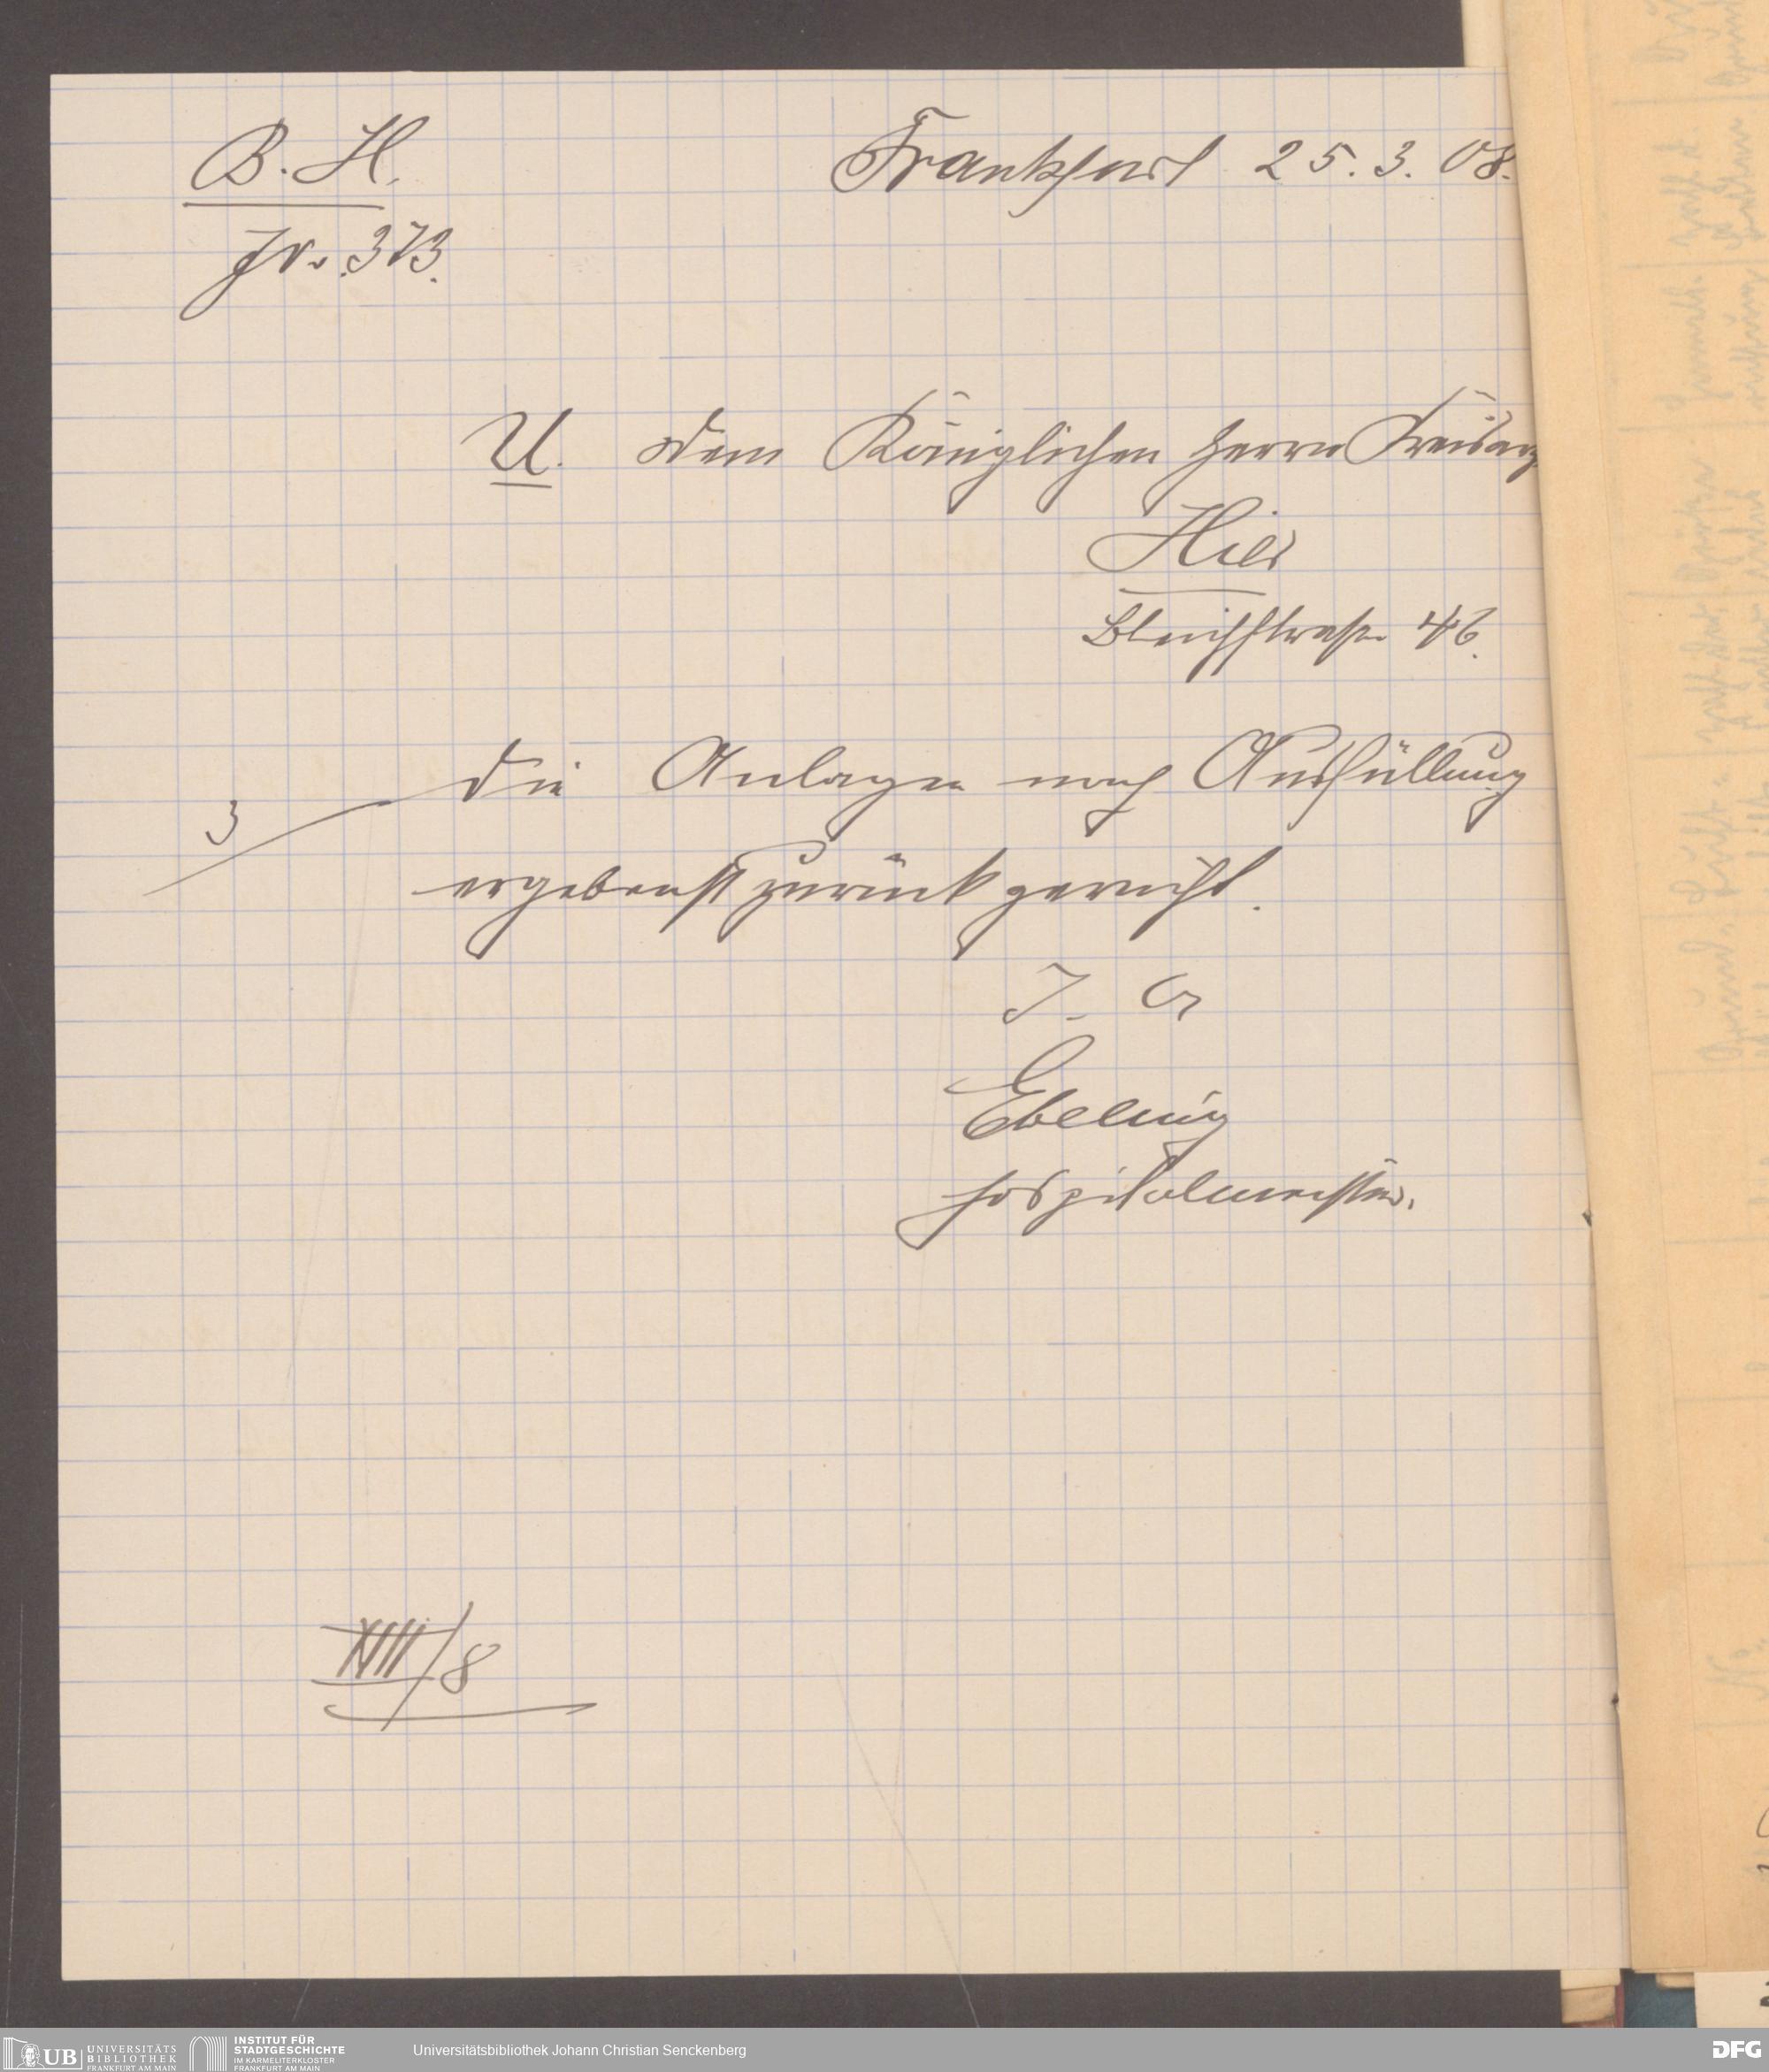 B. H.
Frankfurt 25. 3. 08.
Jr. 373.
U. dem Königlichen Herrn Kreisarz
Hier
Bleichstraße 46.
3
die Anlagen nach Ausfüllung
ergebenst zurückgereicht.
I. A
Ebeling
Hospitalmeister.
XIII/8
UB UNIVERSITÄTS
BIBLIOTHEK
FRANKFURT AM MAIN
INSTITUT FÜR
STADTGESCHICHTE
IM KARMELITERKLOSTER
FRANKFURT AM MAIN
Universitätsbibliothek Johann Christian Senckenberg
DFG